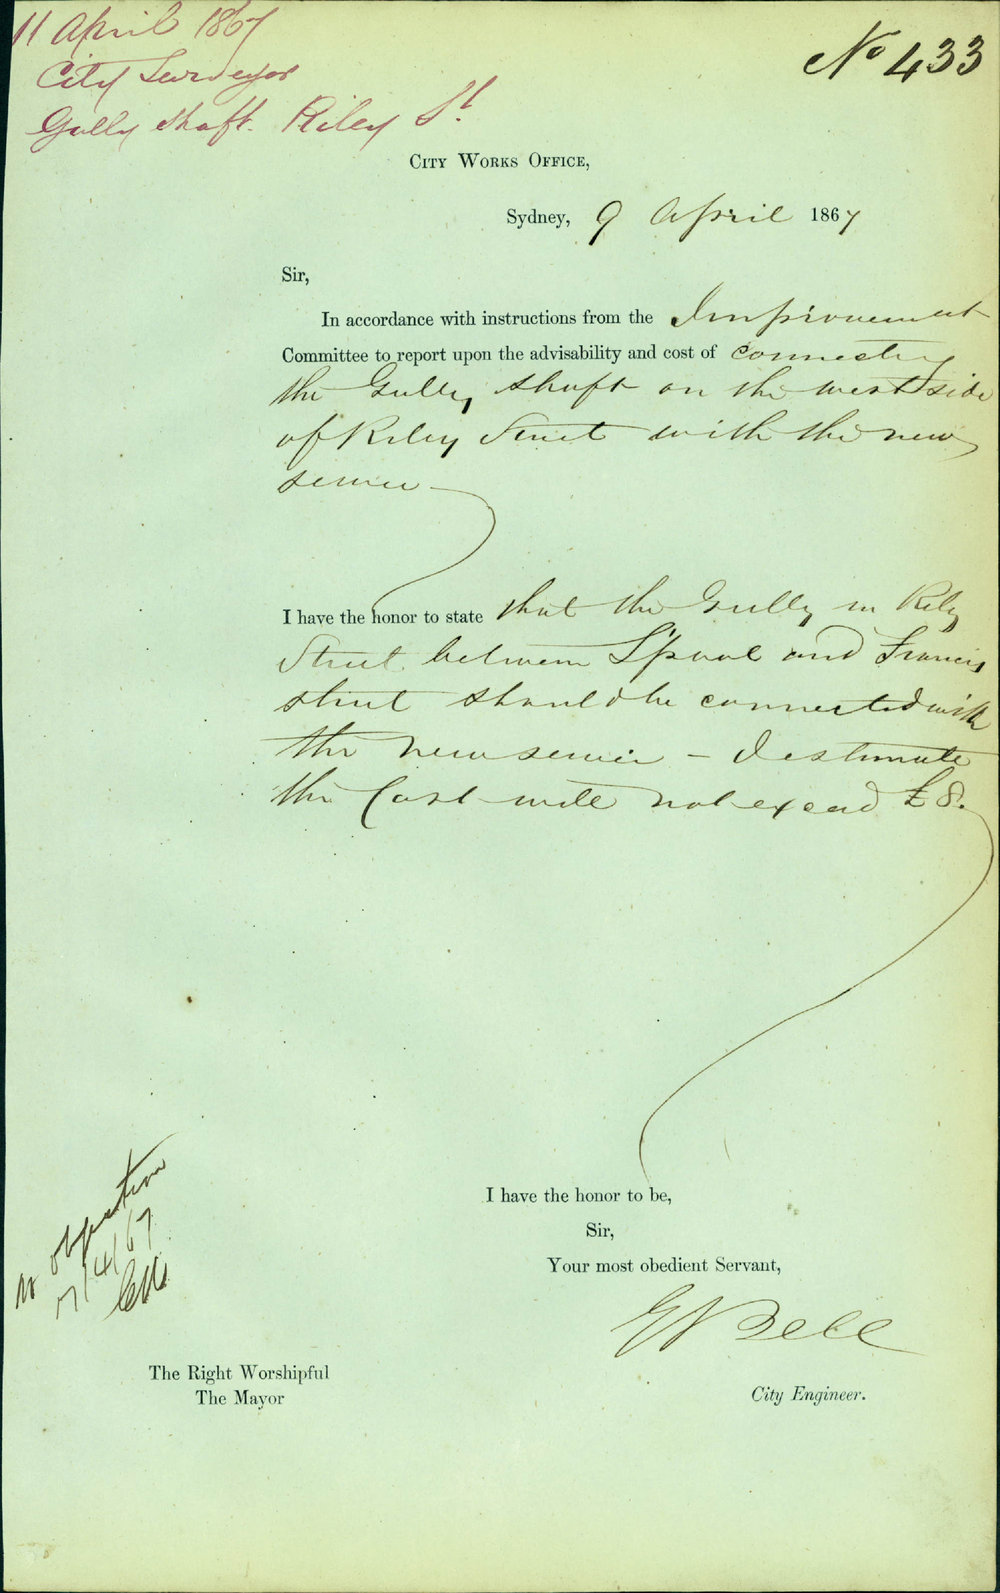 11 April 1867
City Surveyor
Gully shaft. Riley St.
No 433
City Works Office,
Sydney, 9 April 1867
Sir,
In accordance with instructions from the Improvement
Committee to report upon the advisability and cost of connecting
the Gully shaft on the west side
of Riley Street with the new
sewer
I have the honor to state that the Gully in Riley
Street between Stanley and Francis
street should be connected with
the new sewer – I estimate
the Cost will not exceed £8.
I have the honor to be,
Sir,
Your most obedient Servant,
E Bell
City Engineer.
No objection
/4/67
The Right Worshipful
The Mayor